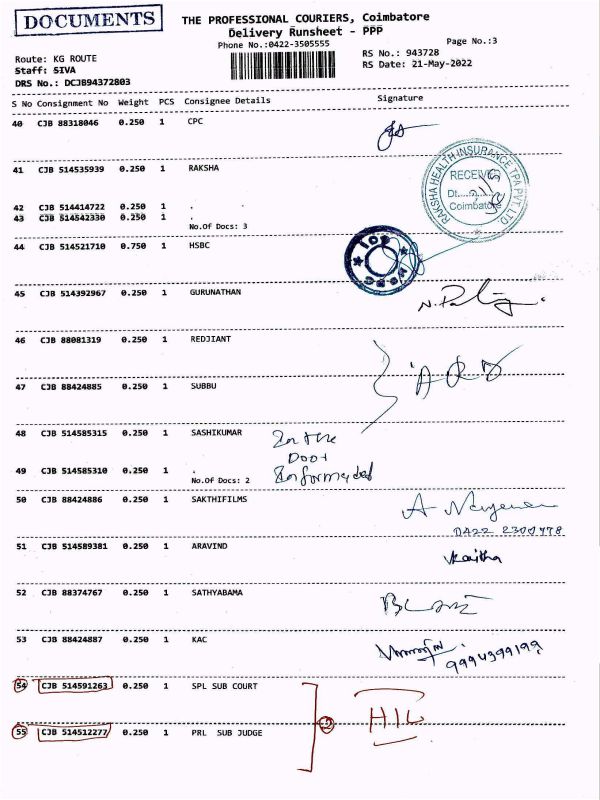 DOCUMENTS
THE PROFESSIONAL COURIERS, Coimbatore
Delivery Runsheet - PPP
Phone No.:0422-3505555
Page No.:3
Route: KG ROUTE
RS No.: 943728
Staff: SIVA
RS Date: 21-May-2022
DRS No.: DCJB94372803
S No Consignment No Weight PCS Consignee Details Signature
40 CJB 88318046 0.250 1 CPC
41 CJB 514535939 0.250 1 RAKSHA
RAKSHA HEALTH INSURANCE TPA PVT. LTD.
RECEIVED
Dt.....
Coimbatore
42 CJB 514414722 0.250 1 .
43 CJB 514542330 0.250 1 .
No.Of Docs: 3
44 CJB 514521710 0.750 1 HSBC
45 CJB 514392967 0.250 1 GURUNATHAN
46 CJB 88081319 0.250 1 REDJIANT
47 CJB 88424885 0.250 1 SUBBU
48 CJB 514585315 0.250 1 SASHIKUMAR
In the
Door
Informed
49 CJB 514585310 0.250 1 .
No.Of Docs: 2
50 CJB 88424886 0.250 1 SAKTHIFILMS
0422 2300778
51 CJB 514589381 0.250 1 ARAVIND
52 CJB 88374767 0.250 1 SATHYABAMA
53 CJB 88424887 0.250 1 KAC
9994399199
54 CJB 514591263 0.250 1 SPL SUB COURT
2
55 CJB 514512277 0.250 1 PRL SUB JUDGE